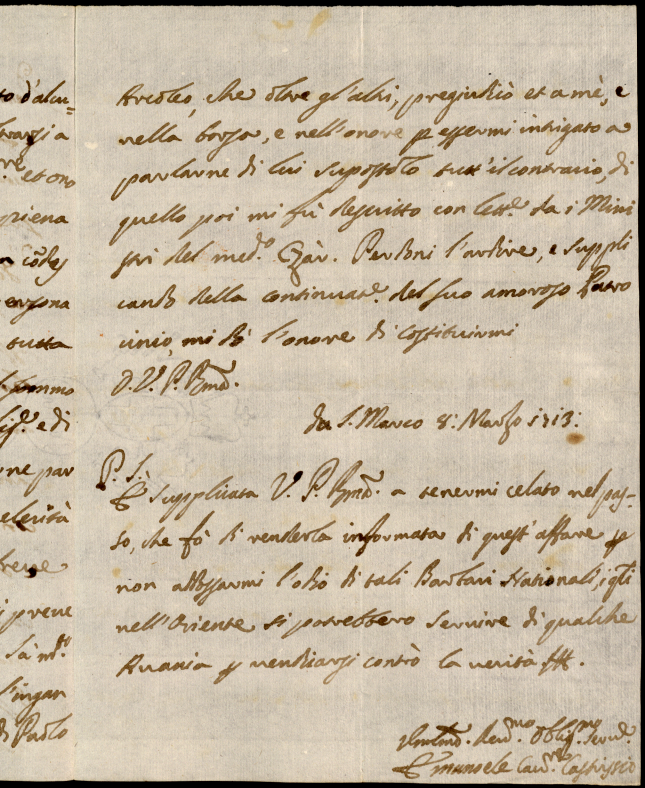 to d'alcu=
trarsi a
et ono
piena
n cõdes
ersona
tutta
sommo
e di
ne par
elerità
breve
i preve
Sà md.º
l'ingan
di Paolo
Arcoleo, che oltre gl'altri, pregiudicò et a mè, e
nella borsa, e nell'onore p essermi intrigato a
parlarne di lui supostolo tutt'il contrario, di
quello poi mi fù descritto con lett.e da i Mini
stri del med.º Czàr. Perdoni l'ardire, e suppli
cando della continuat.e del suo amoroso Patro
cinio, mi dò l'onore di costituirmi
D. V. P. Rmã.
da S. Marco 8: Marzo 1713:
P. S.
È supplicata V. P. Rmã. a tenermi celato nel pas-
so, che fò di renderla informata di quest'affare p
non addossarmi l'odio di tali Barbari Nationali, i qli
nell'Oriente si potrebbero servire di qualche
Avania p vendicarsi contrò la verità
Rev.mo Obblig.mo Serv.e
Emanuele Cav.re